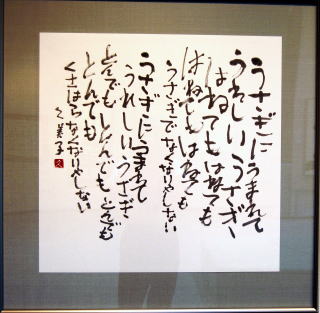 うさぎにうまれて
うれしいうさぎ
はねてもはねても
はねてもはねても
うさぎでなくなりゃしない
うさぎにうまれて
うれしいうさぎ
とんでもとんでもとんでも
とんでも
くさはらなくなりゃしない
久美子